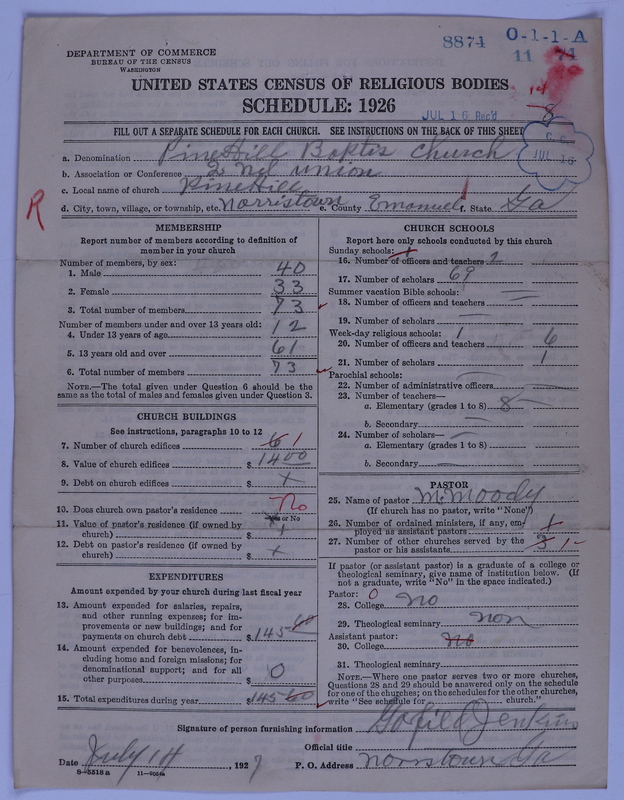 8874 O-1-1-A
11 71
DEPARTMENT OF COMMERCE
BUREAU OF THE CENSUS
WASHINGTON
UNITED STATES CENSUS OF RELIGIOUS BODIES
SCHEDULE: 1926
JUL 16 Rec'd
14
8
FILL OUT A SEPARATE SCHEDULE FOR EACH CHURCH. SEE INSTRUCTIONS ON THE BACK OF THIS SHEET
JUL 16
a. Denomination Pine Hill Baptis Church
b. Association or Conference 2 nd union
c. Local name of church Pine Hill
d. City, town, village, or township, etc. Norristown e. County Emanuel f. State Ga
R
MEMBERSHIP
Report number of members according to definition of
member in your church
Number of members, by sex:
1. Male 40
2. Female 33
3. Total number of members 73
Number of members under and over 13 years old:
4. Under 13 years of age 12
5. 13 years old and over 61
6. Total number of members 73
NOTE.—The total given under Question 6 should be the
same as the total of males and females given under Question 3.
CHURCH BUILDINGS
See instructions, paragraphs 10 to 12
7. Number of church edifices 1
8. Value of church edifices $ 1400
9. Debt on church edifices $ x
10. Does church own pastor's residence No
Yes or No
11. Value of pastor's residence (if owned by
church) $
12. Debt on pastor's residence (if owned by
church) $ x
EXPENDITURES
Amount expended by your church during last fiscal year
13. Amount expended for salaries, repairs,
and other running expenses; for im-
provements or new buildings; and for
payments on church debt $ 145 00
14. Amount expended for benevolences, in-
cluding home and foreign missions; for
denominational support; and for all
other purposes $ 0
15. Total expenditures during year $ 145 00
CHURCH SCHOOLS
Report here only schools conducted by this church
Sunday schools:
16. Number of officers and teachers 2
17. Number of scholars 69
Summer vacation Bible schools:
18. Number of officers and teachers
19. Number of scholars
Week-day religious schools: 1
20. Number of officers and teachers 6
21. Number of scholars 1
Parochial schools:
22. Number of administrative officers
23. Number of teachers—
a. Elementary (grades 1 to 8) 8
b. Secondary
24. Number of scholars—
a. Elementary (grades 1 to 8)
b. Secondary
PASTOR
25. Name of pastor M. Moody
(If church has no pastor, write "None")
26. Number of ordained ministers, if any, em-
ployed as assistant pastors
27. Number of other churches served by the
pastor or his assistants 3 1
If pastor (or assistant pastor) is a graduate of a college or
theological seminary, give name of institution below. (If
not a graduate, write "No" in the space indicated.)
Pastor: 0
28. College no
29. Theological seminary non
Assistant pastor:
30. College no
31. Theological seminary
NOTE.—Where one pastor serves two or more churches,
Questions 28 and 29 should be answered only on the schedule
for one of the churches; on the schedules for the other churches,
write "See schedule for church."
Signature of person furnishing information Jenkins
Official title
Date July 14, 1927 P. O. Address Norristown Ga
8—5518 a